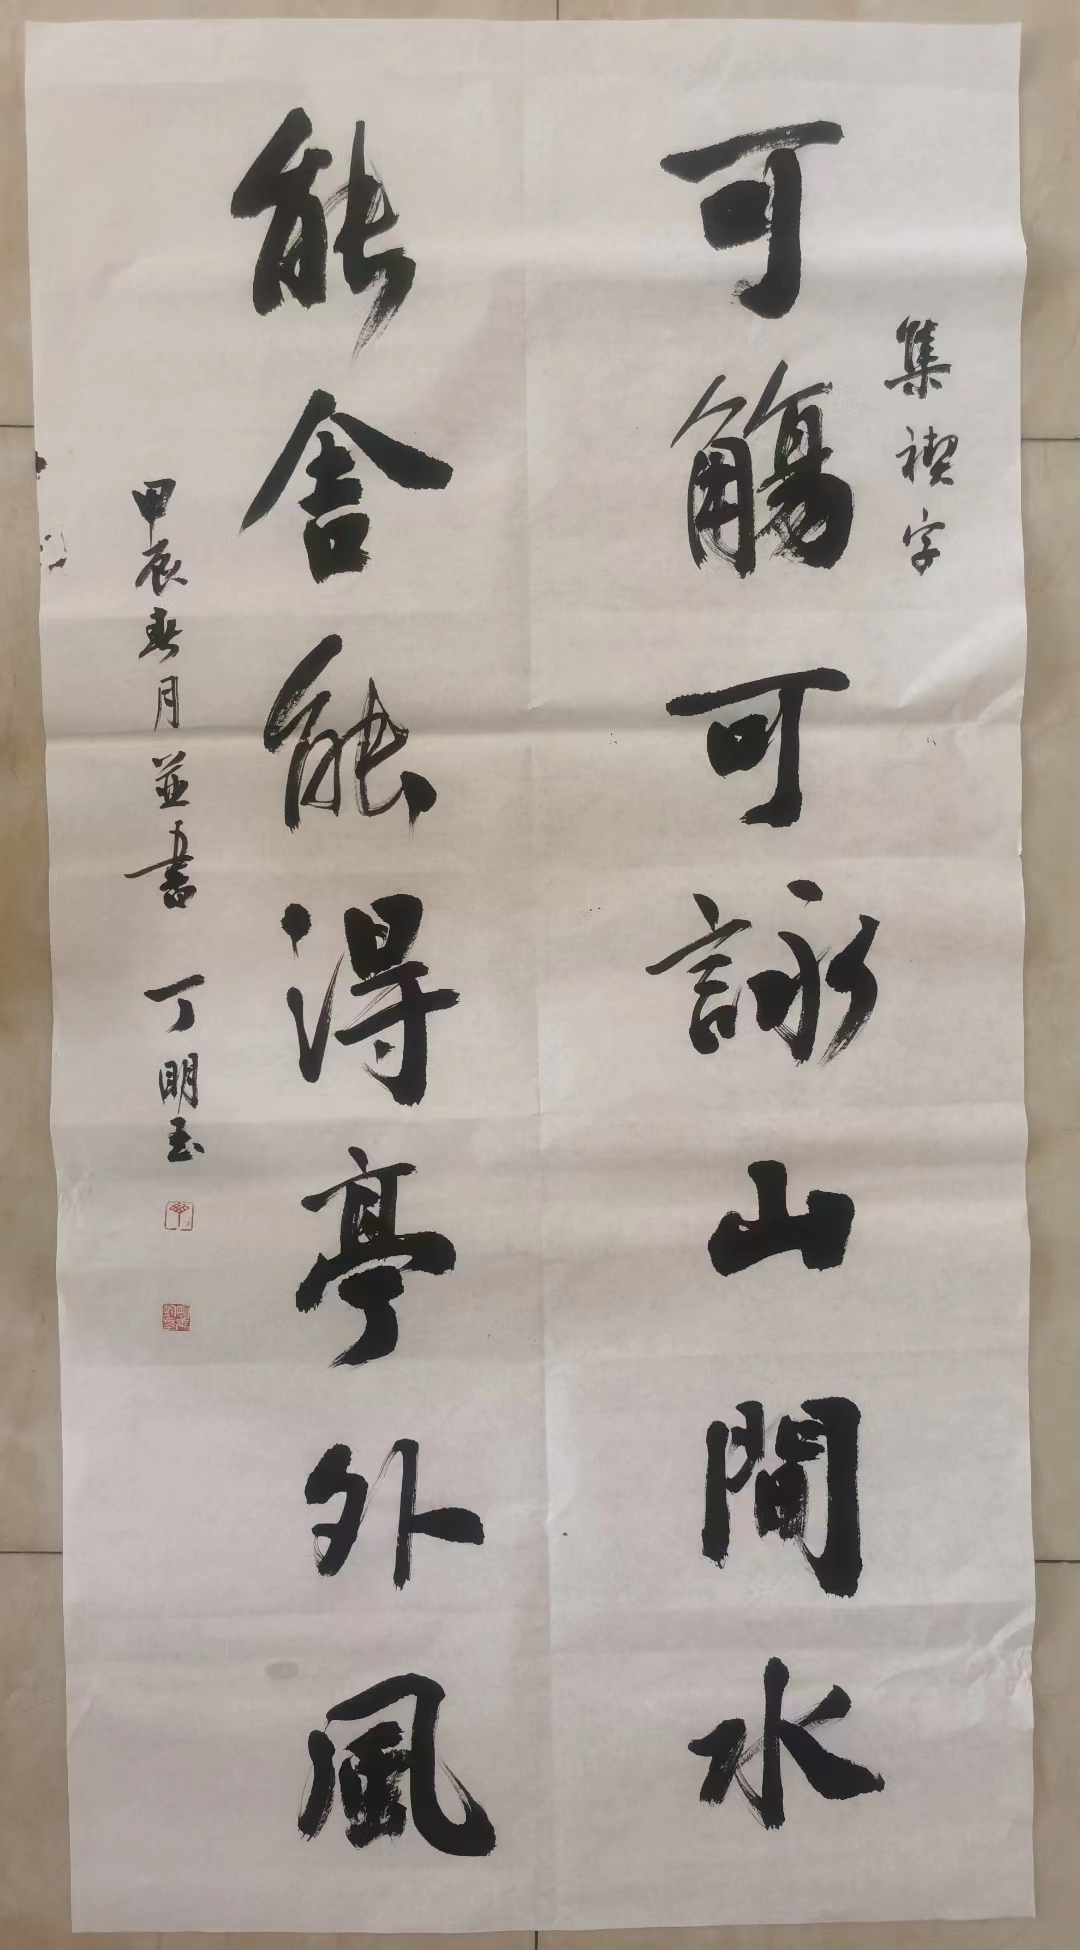 集禊字
可觴可詠山間水
能舍能得亭外風
甲辰春月並書 丁明玉